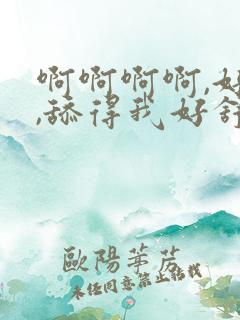 啊啊啊啊,好
,舔得我好舒
歐陽華芳
未经同意禁止转载